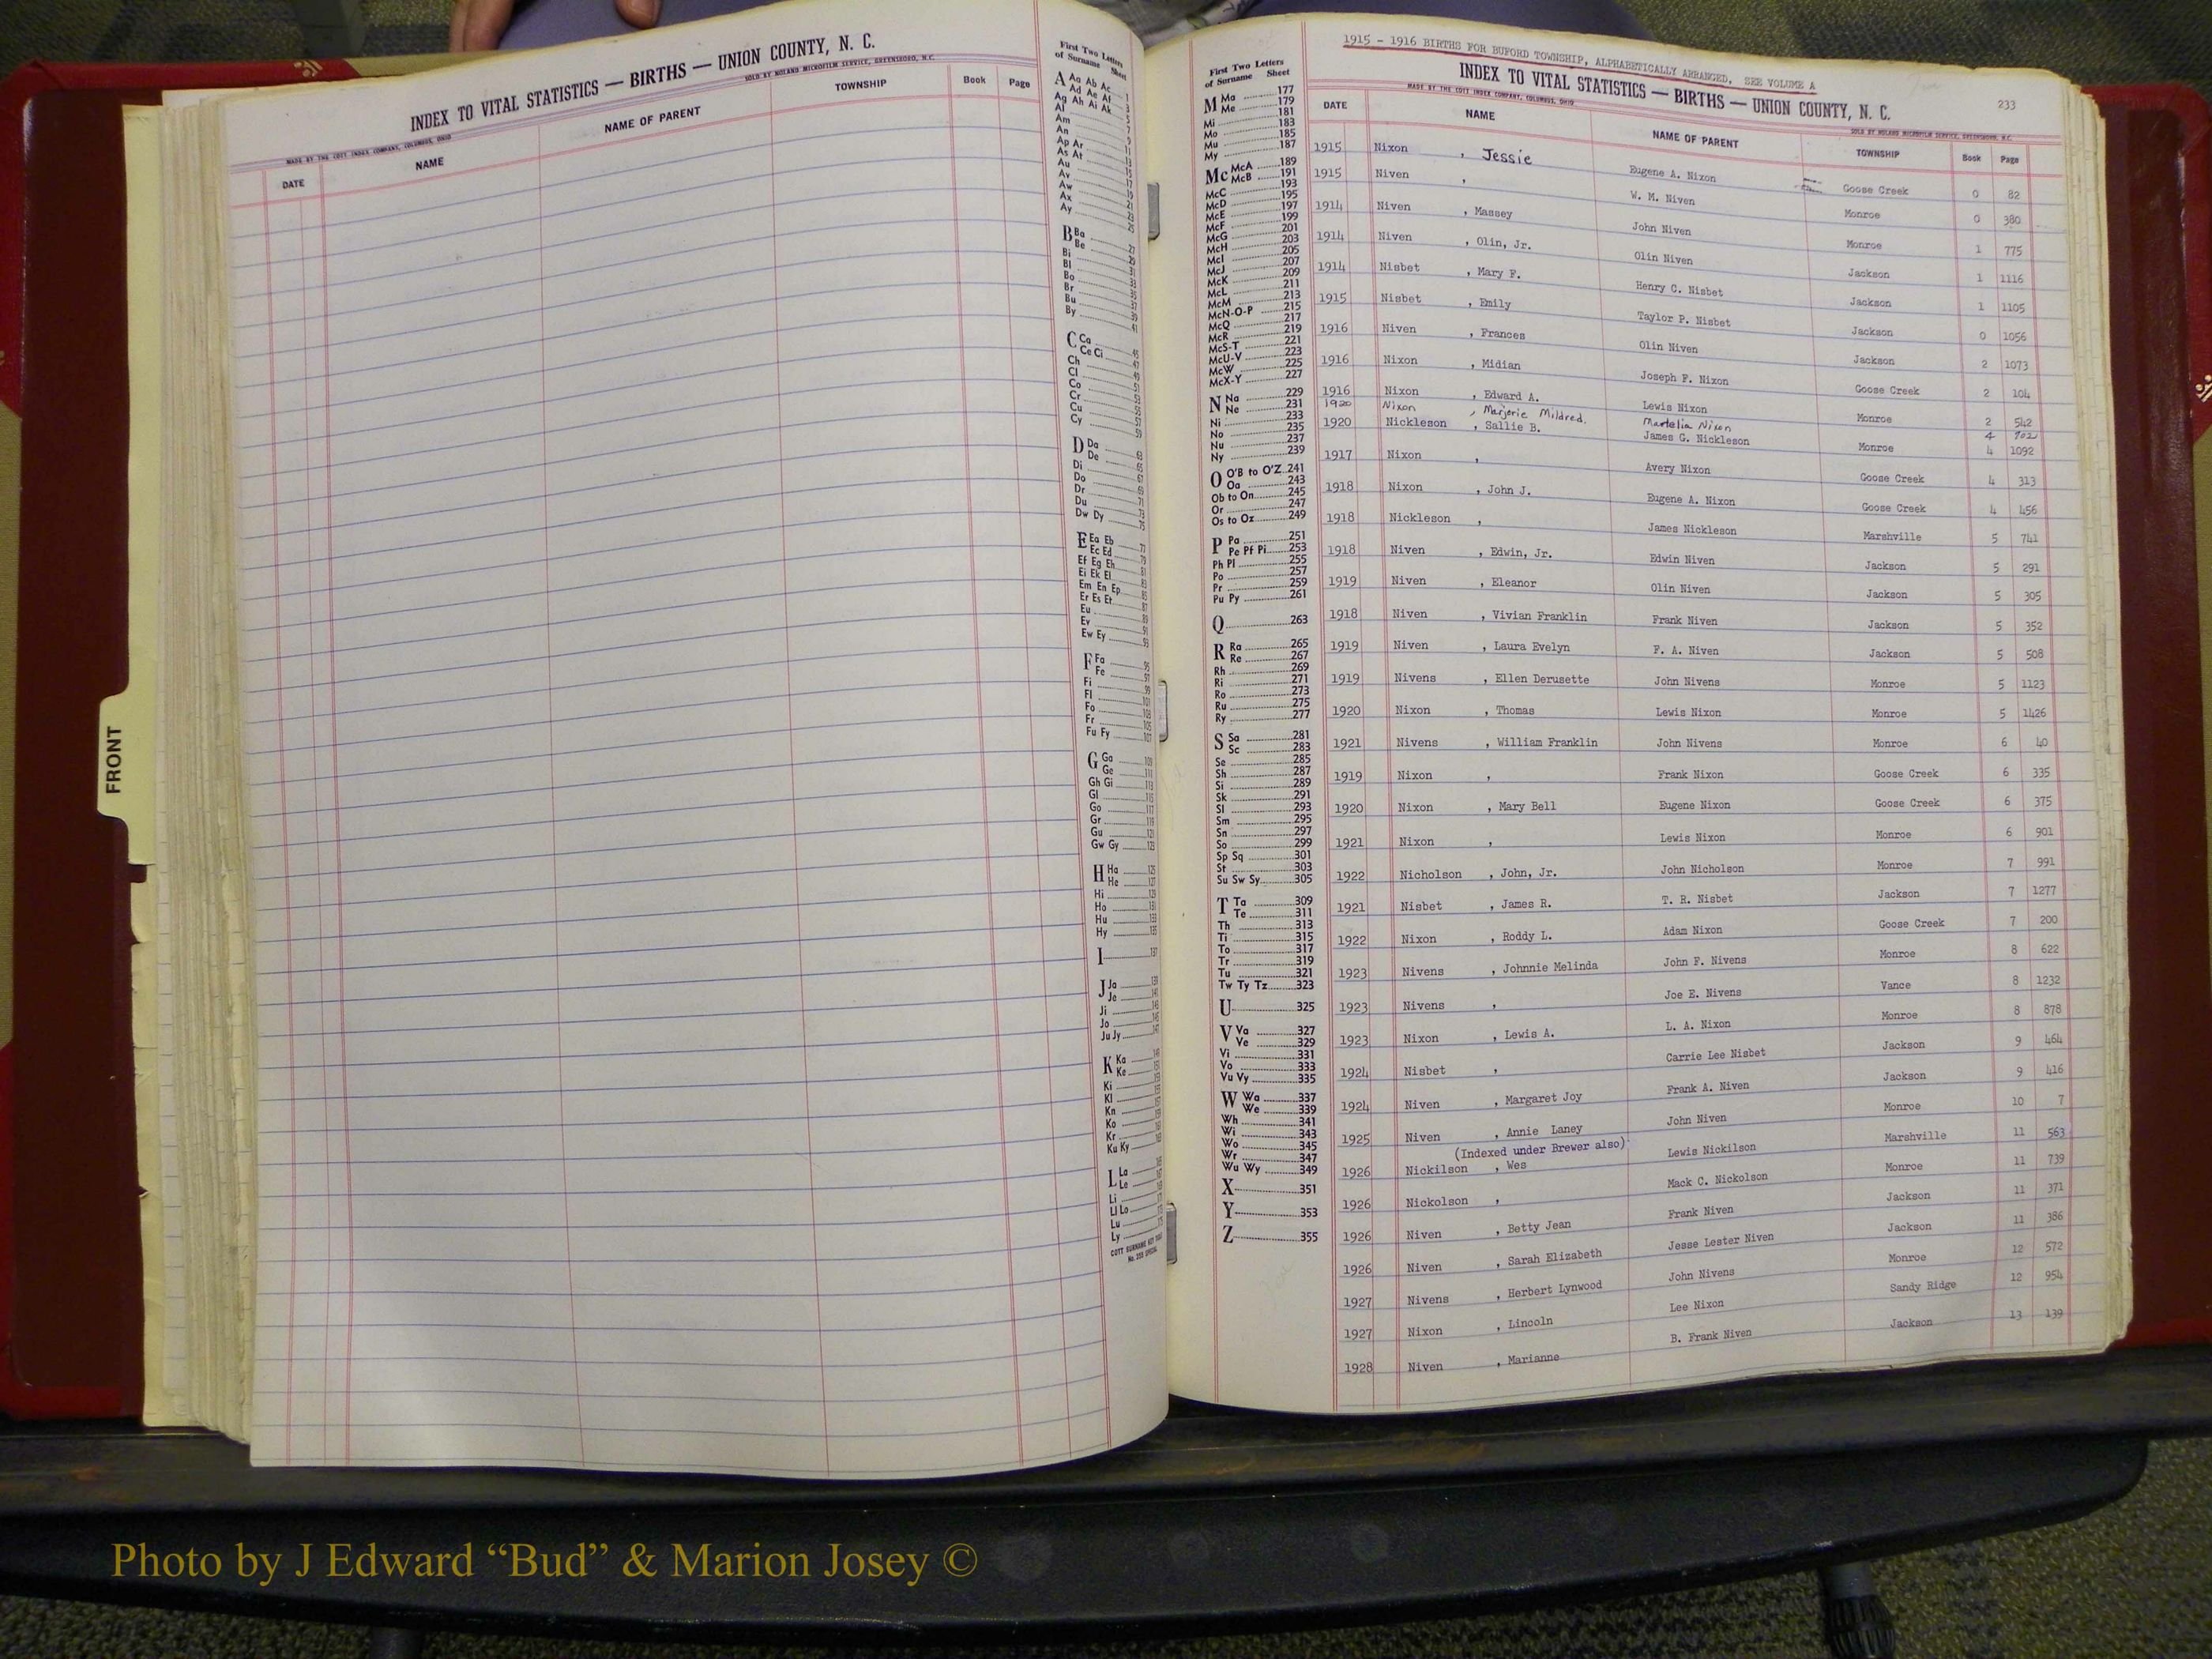 FRONT
INDEX TO VITAL STATISTICS — BIRTHS — UNION COUNTY, N. C.
MADE BY THE COTT INDEX COMPANY, COLUMBUS, OHIO SOLD BY NOLAND MICROFILM SERVICE, GREENSBORO, N.C.
DATE NAME NAME OF PARENT TOWNSHIP Book Page
First Two Letters
of Surname Sheet
A Aa Ab Ac 1
Ad Ae Af 3
Ag Ah Ai Ak 5
Al 7
Am 9
An 11
Ap Ar 13
As At 15
Au 17
Av 19
Aw 21
Ax 23
Ay 25
B Ba 27
Be 29
Bi 31
Bl 33
Bo 35
Br 37
Bu 39
By 41
C Ca 45
Ce Ci 47
Ch 49
Cl 51
Co 53
Cr 55
Cu 57
Cy 59
D Da 63
De 65
Di 67
Do 69
Dr 71
Du 73
Dw Dy 75
E Ea Eb 77
Ec Ed 79
Ef Eg Eh 81
Ei Ek El 83
Em En Ep 85
Er Es Et 87
Eu 89
Ev 91
Ew Ey 93
F Fa 95
Fe 97
Fi 99
Fl 101
Fo 103
Fr 105
Fu Fy 107
G Ga 109
Ge 111
Gh Gi 113
Gl 115
Go 117
Gr 119
Gu 121
Gw Gy 123
H Ha 125
He 127
Hi 129
Ho 131
Hu 133
Hy 135
I 137
J Ja 139
Je 141
Ji 143
Jo 145
Ju Jy 147
K Ka 149
Ke
Ki
Kl
Kn
Ko
Kr
Ku Ky
L La
Le
Li
Ll Lo
Lu
Ly
COTT SURNAME KEY TABLE
No. 255 SPECIAL
1915 - 1916 BIRTHS FOR BUFORD TOWNSHIP, ALPHABETICALLY ARRANGED, SEE VOLUME A
INDEX TO VITAL STATISTICS — BIRTHS — UNION COUNTY, N. C. 233
MADE BY THE COTT INDEX COMPANY, COLUMBUS, OHIO SOLD BY NOLAND MICROFILM SERVICE, GREENSBORO, N.C.
First Two Letters
of Surname Sheet
M Ma 177
Me 179
Mi 181
Mo 183
Mu 185
My 187
Mc McA 189
McB 191
McC 193
McD 195
McE 197
McF 199
McG 201
McH 203
McI 205
McJ 207
McK 209
McL 211
McM 213
McN-O-P 215
McQ 217
McR 219
McS-T 221
McU-V 223
McW 225
McX-Y 227
N Na 229
Ne 231
Ni 233
No 235
Nu 237
Ny 239
O O'B to O'Z 241
Oa 243
Ob to On 245
Or 247
Os to Oz 249
P Pa 251
Pe Pf Pi 253
Ph Pl 255
Po 257
Pr 259
Pu Py 261
Q 263
R Ra 265
Re 267
Rh 269
Ri 271
Ro 273
Ru 275
Ry 277
S Sa 281
Sc 283
Se 285
Sh 287
Si 289
Sk 291
Sl 293
Sm 295
Sn 297
So 299
Sp Sq 301
St 303
Su Sw Sy 305
T Ta 309
Te 311
Th 313
Ti 315
To 317
Tr 319
Tu 321
Tw Ty Tz 323
U 325
V Va 327
Ve 329
Vi 331
Vo 333
Vu Vy 335
W Wa 337
We 339
Wh 341
Wi 343
Wo 345
Wr 347
Wu Wy 349
X 351
Y 353
Z 355
DATE NAME NAME OF PARENT TOWNSHIP Book Page
1915 Nixon , Jessie Eugene A. Nixon Goose Creek 0 82
1915 Niven , W. M. Niven Monroe 0 380
1914 Niven , Massey John Niven Monroe 1 775
1914 Niven , Olin, Jr. Olin Niven Jackson 1 1116
1914 Nisbet , Mary F. Henry C. Nisbet Jackson 1 1105
1915 Nisbet , Emily Taylor P. Nisbet Jackson 0 1056
1916 Niven , Frances Olin Niven Jackson 2 1073
1916 Nixon , Midian Joseph F. Nixon Goose Creek 2 104
1916 Nixon , Edward A. Lewis Nixon Monroe 2 542
1920 Nixon , Marjorie Mildred. Martelia Nixon 4 902
1920 Nickleson , Sallie B. James G. Nickleson Monroe 4 1092
1917 Nixon , Avery Nixon Goose Creek 4 313
1918 Nixon , John J. Eugene A. Nixon Goose Creek 4 456
1918 Nickleson , James Nickleson Marshville 5 741
1918 Niven , Edwin, Jr. Edwin Niven Jackson 5 291
1919 Niven , Eleanor Olin Niven Jackson 5 305
1918 Niven , Vivian Franklin Frank Niven Jackson 5 352
1919 Niven , Laura Evelyn F. A. Niven Jackson 5 508
1919 Nivens , Ellen Derusette John Nivens Monroe 5 1123
1920 Nixon , Thomas Lewis Nixon Monroe 5 1426
1921 Nivens , William Franklin John Nivens Monroe 6 40
1919 Nixon , Frank Nixon Goose Creek 6 335
1920 Nixon , Mary Bell Eugene Nixon Goose Creek 6 375
1921 Nixon , Lewis Nixon Monroe 6 901
1922 Nicholson , John, Jr. John Nicholson Monroe 7 991
1921 Nisbet , James R. T. R. Nisbet Jackson 7 1277
1922 Nixon , Roddy L. Adam Nixon Goose Creek 7 200
1923 Nivens , Johnnie Melinda John F. Nivens Monroe 8 622
1923 Nivens , Joe E. Nivens Vance 8 1232
1923 Nixon , Lewis A. L. A. Nixon Monroe 8 878
1924 Nisbet , Carrie Lee Nisbet Jackson 9 464
1924 Niven , Margaret Joy Frank A. Niven Jackson 9 416
1925 Niven , Annie Laney John Niven Monroe 10 7
(Indexed under Brewer also)
1926 Nickilson , Wes Lewis Nickilson Marshville 11 563
1926 Nickolson , Mack C. Nickolson Monroe 11 739
1926 Niven , Betty Jean Frank Niven Jackson 11 371
1926 Niven , Sarah Elizabeth Jesse Lester Niven Jackson 11 386
1927 Nivens , Herbert Lynwood John Nivens Monroe 12 572
1927 Nixon , Lincoln Lee Nixon Sandy Ridge 12 954
1928 Niven , Marianne B. Frank Niven Jackson 13 139
Photo by J Edward “Bud” & Marion Josey ©